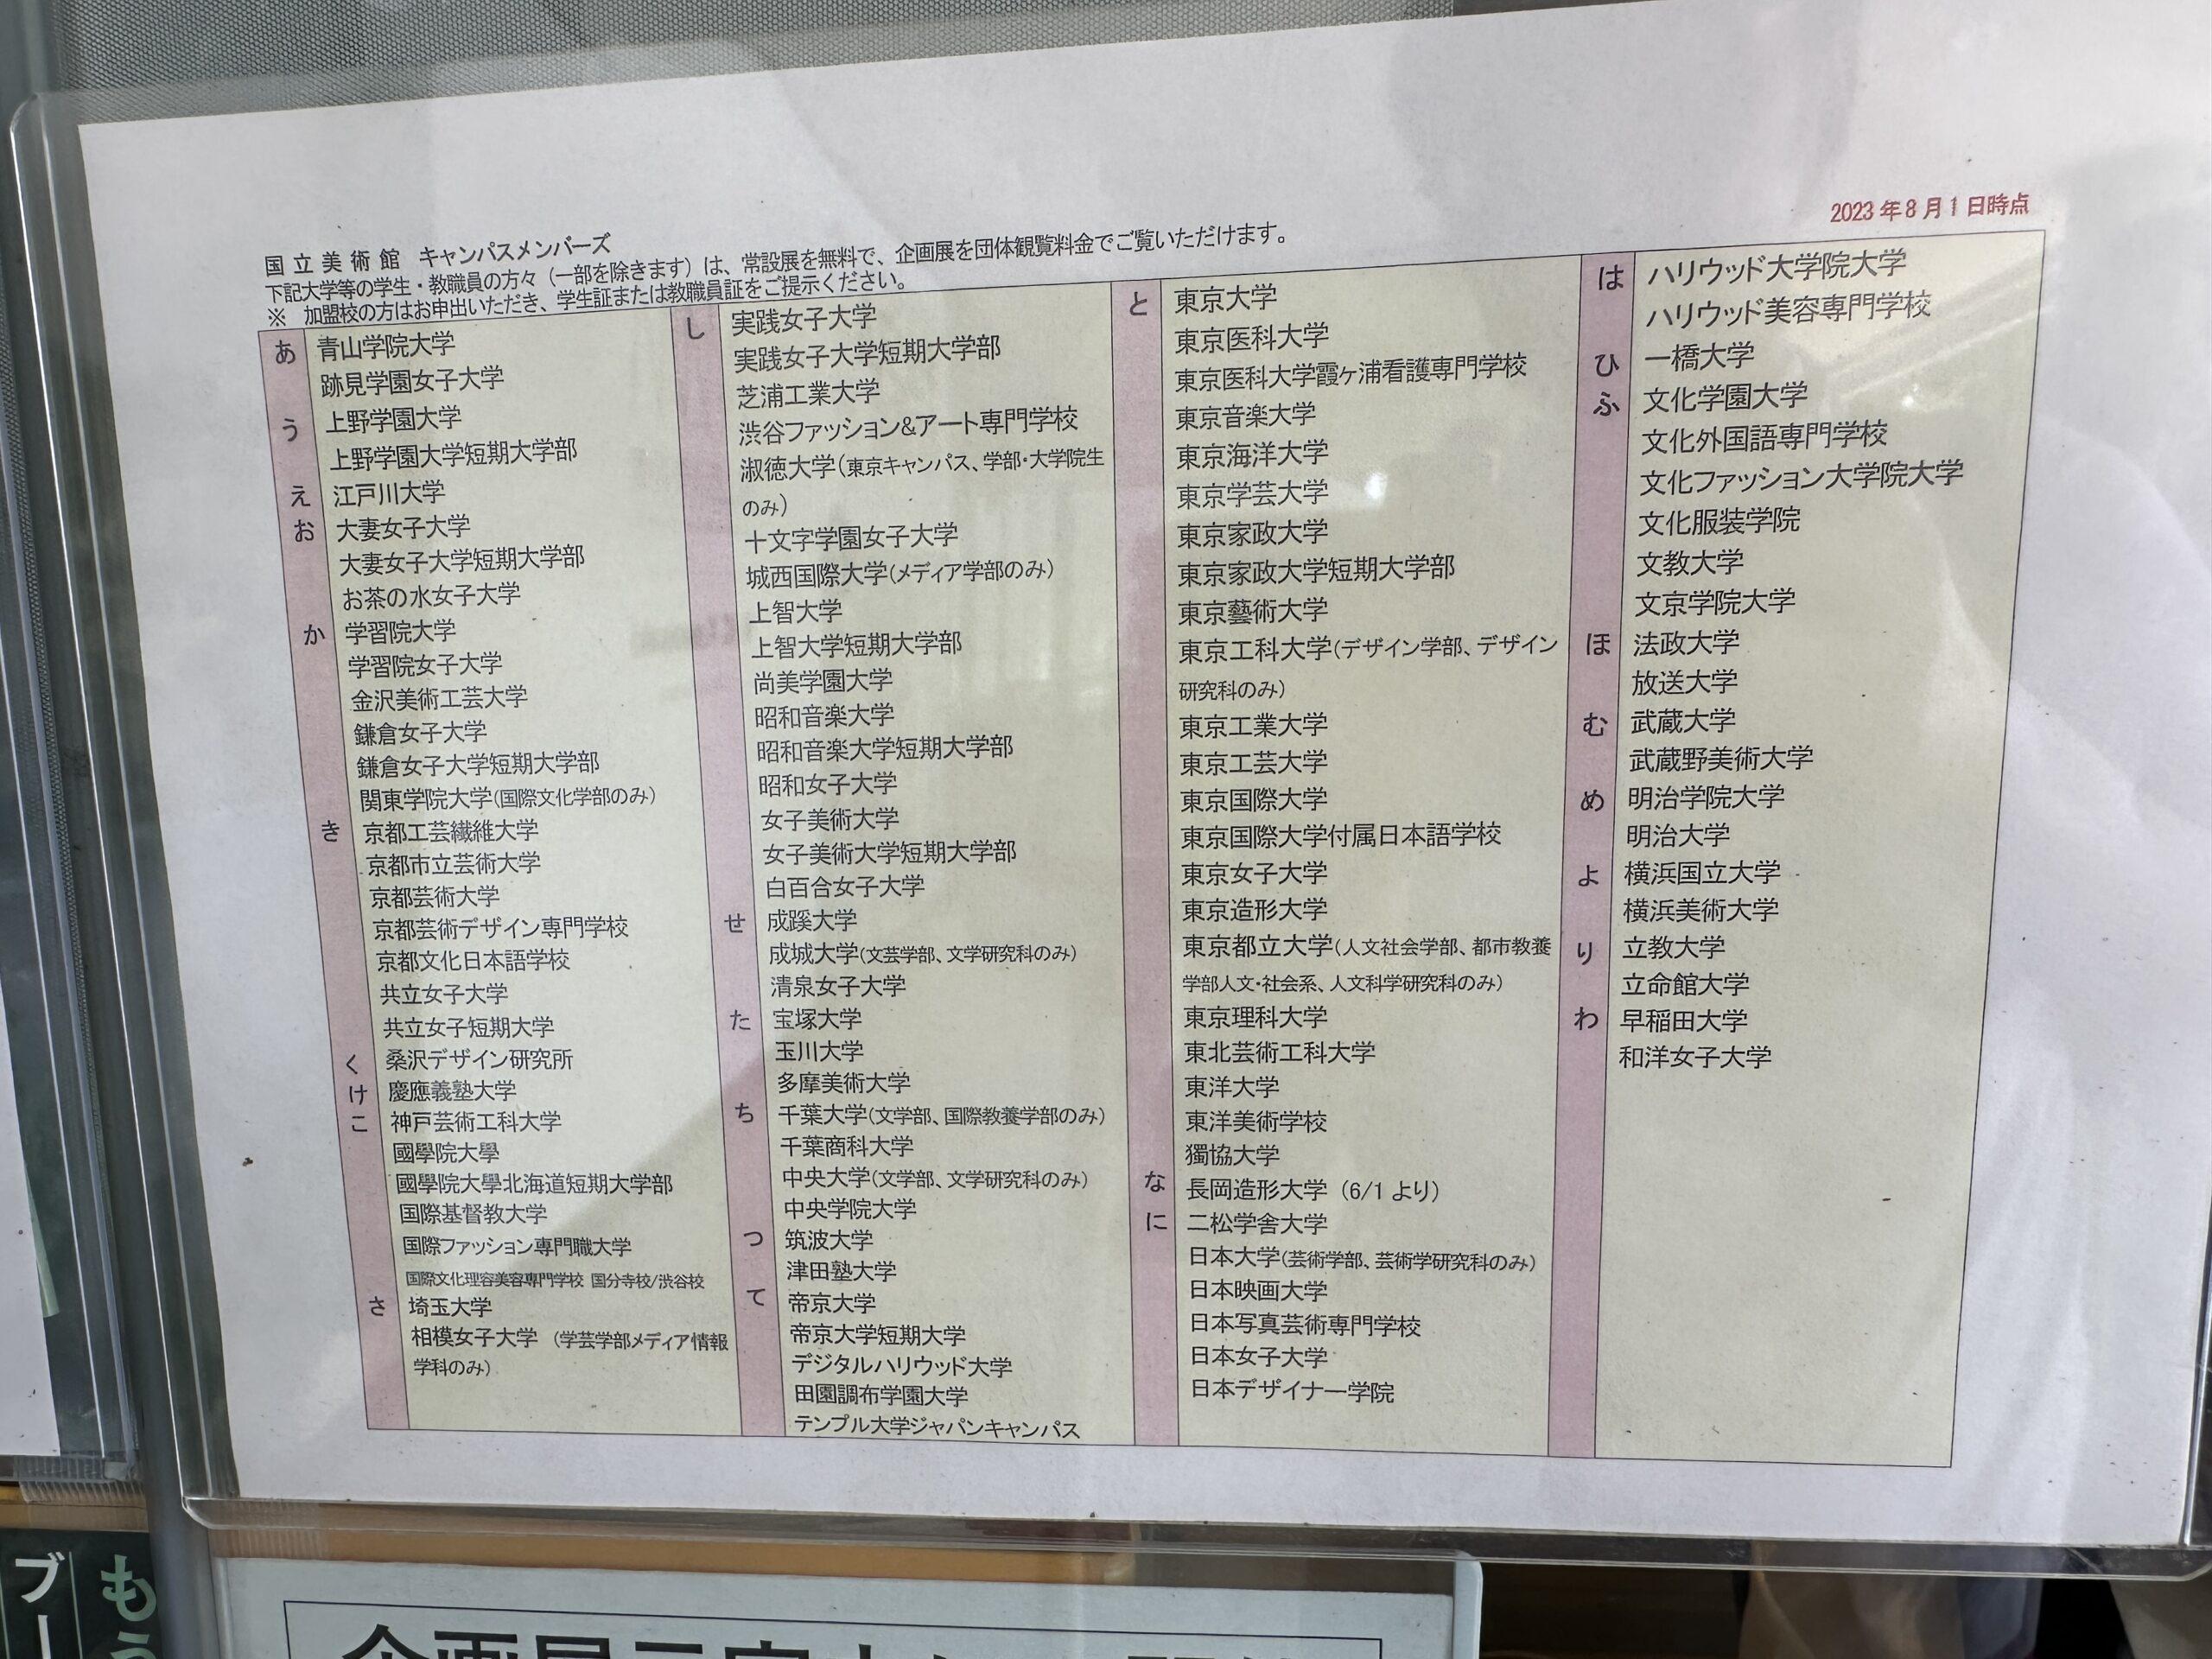 2023年8月1日時点
国立美術館 キャンパスメンバーズ
下記大学等の学生・教職員の方々（一部を除きます）は、常設展を無料で、企画展を団体観覧料金でご覧いただけます。
※ 加盟校の方はお申出いただき、学生証または教職員証をご提示ください。
あ 青山学院大学
跡見学園女子大学
う 上野学園大学
上野学園大学短期大学部
え 江戸川大学
お 大妻女子大学
大妻女子大学短期大学部
お茶の水女子大学
か 学習院大学
学習院女子大学
金沢美術工芸大学
鎌倉女子大学
鎌倉女子大学短期大学部
関東学院大学(国際文化学部のみ)
き 京都工芸繊維大学
京都市立芸術大学
京都芸術大学
京都芸術デザイン専門学校
京都文化日本語学校
共立女子大学
共立女子短期大学
く 桑沢デザイン研究所
け 慶應義塾大学
こ 神戸芸術工科大学
國學院大學
國學院大學北海道短期大学部
国際基督教大学
国際ファッション専門職大学
国際文化理容美容専門学校 国分寺校/渋谷校
さ 埼玉大学
相模女子大学 （学芸学部メディア情報
学科のみ）
し 実践女子大学
実践女子大学短期大学部
芝浦工業大学
渋谷ファッション&アート専門学校
淑徳大学(東京キャンパス、学部・大学院生
のみ)
十文字学園女子大学
城西国際大学(メディア学部のみ)
上智大学
上智大学短期大学部
尚美学園大学
昭和音楽大学
昭和音楽大学短期大学部
昭和女子大学
女子美術大学
女子美術大学短期大学部
白百合女子大学
せ 成蹊大学
成城大学(文芸学部、文学研究科のみ)
清泉女子大学
た 宝塚大学
玉川大学
多摩美術大学
ち 千葉大学(文学部、国際教養学部のみ)
千葉商科大学
中央大学(文学部、文学研究科のみ)
中央学院大学
つ 筑波大学
津田塾大学
て 帝京大学
帝京大学短期大学
デジタルハリウッド大学
田園調布学園大学
テンプル大学ジャパンキャンパス
と 東京大学
東京医科大学
東京医科大学霞ヶ浦看護専門学校
東京音楽大学
東京海洋大学
東京学芸大学
東京家政大学
東京家政大学短期大学部
東京藝術大学
東京工科大学(デザイン学部、デザイン
研究科のみ)
東京工業大学
東京工芸大学
東京国際大学
東京国際大学付属日本語学校
東京女子大学
東京造形大学
東京都立大学(人文社会学部、都市教養
学部人文・社会系、人文科学研究科のみ)
東京理科大学
東北芸術工科大学
東洋大学
東洋美術学校
獨協大学
な 長岡造形大学（6/1 より）
に 二松学舎大学
日本大学(芸術学部、芸術学研究科のみ)
日本映画大学
日本写真芸術専門学校
日本女子大学
日本デザイナー学院
は ハリウッド大学院大学
ハリウッド美容専門学校
ひ 一橋大学
ふ 文化学園大学
文化外国語専門学校
文化ファッション大学院大学
文化服装学院
文教大学
文京学院大学
ほ 法政大学
放送大学
む 武蔵大学
武蔵野美術大学
め 明治学院大学
明治大学
よ 横浜国立大学
横浜美術大学
り 立教大学
立命館大学
わ 早稲田大学
和洋女子大学
もう
ブー